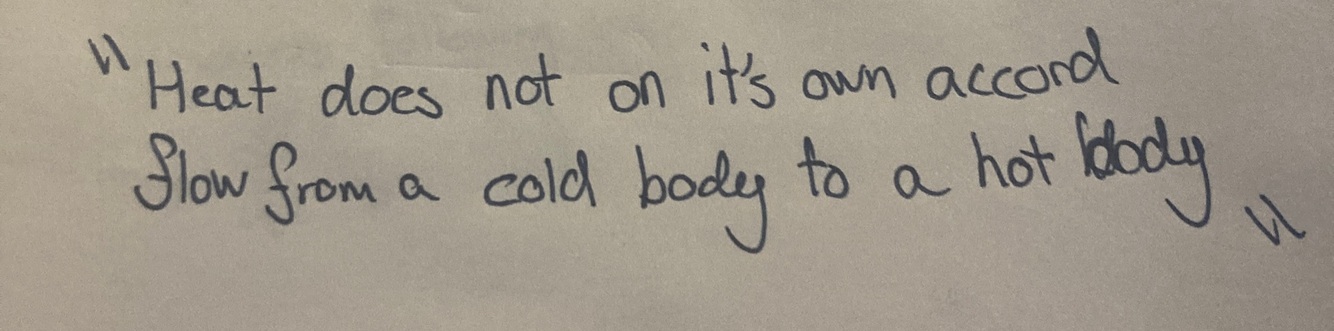 "Heat does not on it's own accord
flow from a cold body to a hot body"